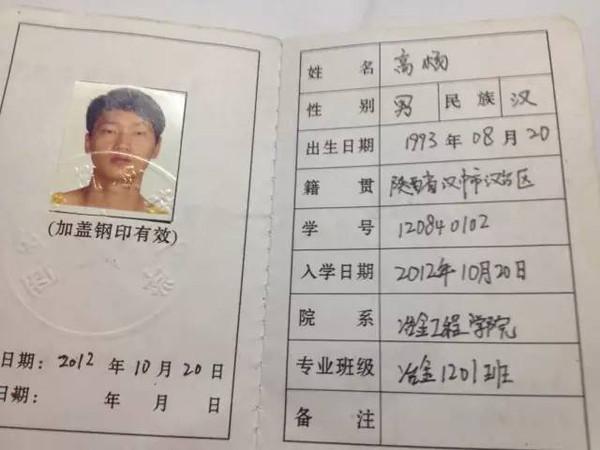 (加盖钢印有效)
日期: 2012 年 10 月 20 日
日期: 年 月 日
姓 名 高杨
性 别 男 民 族 汉
出生日期 1993 年 08 月 20
籍 贯 陕西省汉中市汉台区
学 号 120840102
入学日期 2012年10月20日
院 系 冶金工程学院
专业班级 冶金1201班
备 注